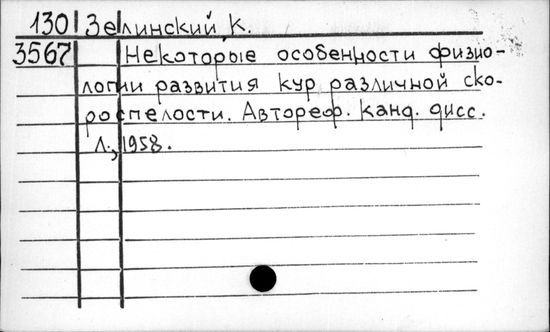 130 Зелинский, К.
3567 Некоторые особенности физио-
логии развития кур различной ско-
роспелости. Автореф. канд. дисс.
Л., 1958.